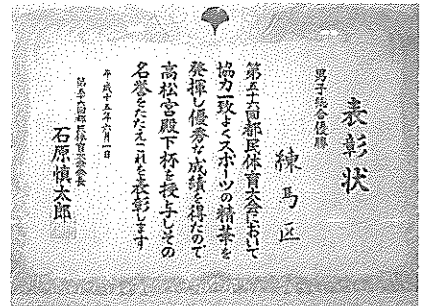 表彰状
男子総合優勝
練馬区
第五十六回都民体育大会において
協力一致よくスポーツの精華を
発揮し優秀な成績を得たので
高松宮殿下杯を授与しその
名誉をたたえこれを表彰します
平成十五年六月一日
第五十六回都民体育大会会長
石原慎太郎